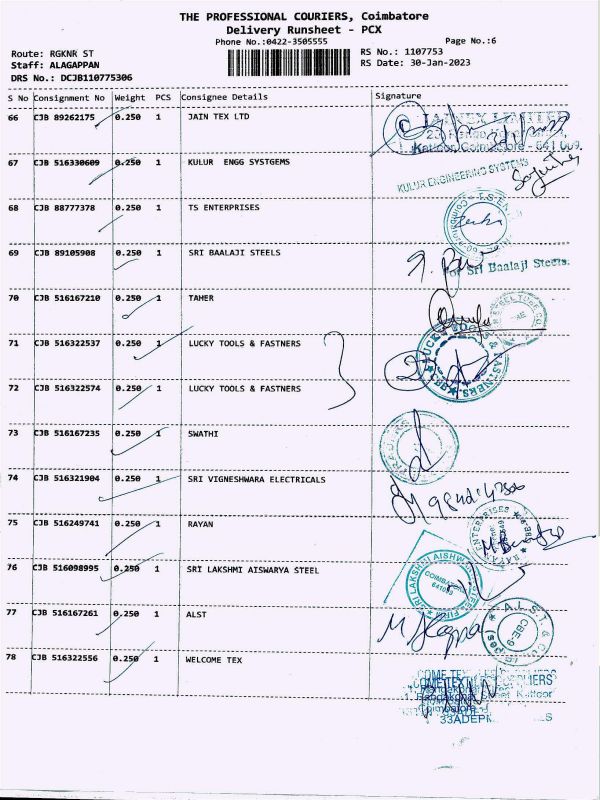 THE PROFESSIONAL COURIERS, Coimbatore
Delivery Runsheet - PCX
Phone No.:0422-3505555
Page No.:6
Route: RGKNR ST
Staff: ALAGAPPAN
DRS No.: DCJB110775306
RS No.: 1107753
RS Date: 30-Jan-2023
S No Consignment No Weight PCS Consignee Details Signature
66 CJB 89262175 0.250 1 JAIN TEX LTD
67 CJB 516330609 0.250 1 KULUR ENGG SYSTGEMS
KULUR ENGINEERING SYSTEMS
68 CJB 88777378 0.250 1 TS ENTERPRISES
69 CJB 89105908 0.250 1 SRI BAALAJI STEELS
For Sri Baalaji Steels.
70 CJB 516167210 0.250 1 TAHER
71 CJB 516322537 0.250 1 LUCKY TOOLS & FASTNERS
72 CJB 516322574 0.250 1 LUCKY TOOLS & FASTNERS
73 CJB 516167235 0.250 1 SWATHI
74 CJB 516321904 0.250 1 SRI VIGNESHWARA ELECTRICALS
75 CJB 516249741 0.250 1 RAYAN
76 CJB 516098995 0.250 1 SRI LAKSHMI AISWARYA STEEL
77 CJB 516167261 0.250 1 ALST
78 CJB 516322556 0.250 1 WELCOME TEX